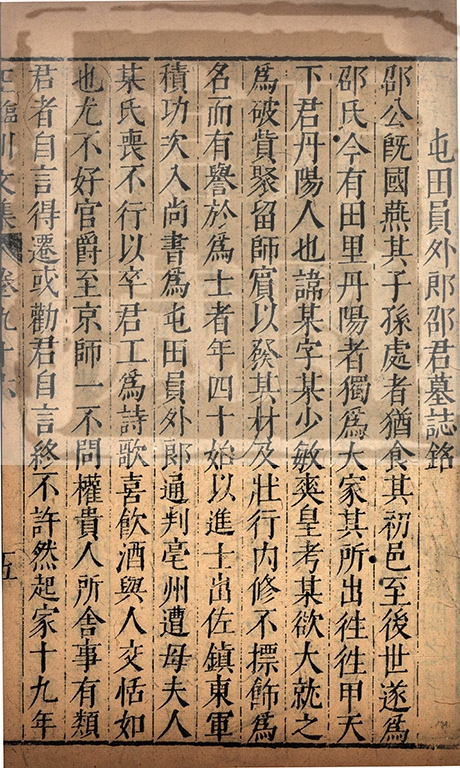 屯田員外郎邵君墓誌銘
邵公旣國燕其子孫處者猶食其初邑至後世遂爲
邵氏今有田里丹陽者獨爲大家其所出往往甲天
下君丹陽人也諱某字某少敏爽皇考某欲大就之
爲破貲聚留師賔以發其材及壯行内修不摽飾爲
名而有譽於爲士者年四十始以進士出佐鎮東軍
積功次入尚書爲屯田員外郎通判亳州遭母夫人
某氏喪不行以卒君工爲詩歌喜飲酒與人交恬如
也尤不好官爵至京師一不問權貴人所舍事有類
君者自言得遷或勸君自言終不許然起家十九年
臨川文集 卷九十六 五